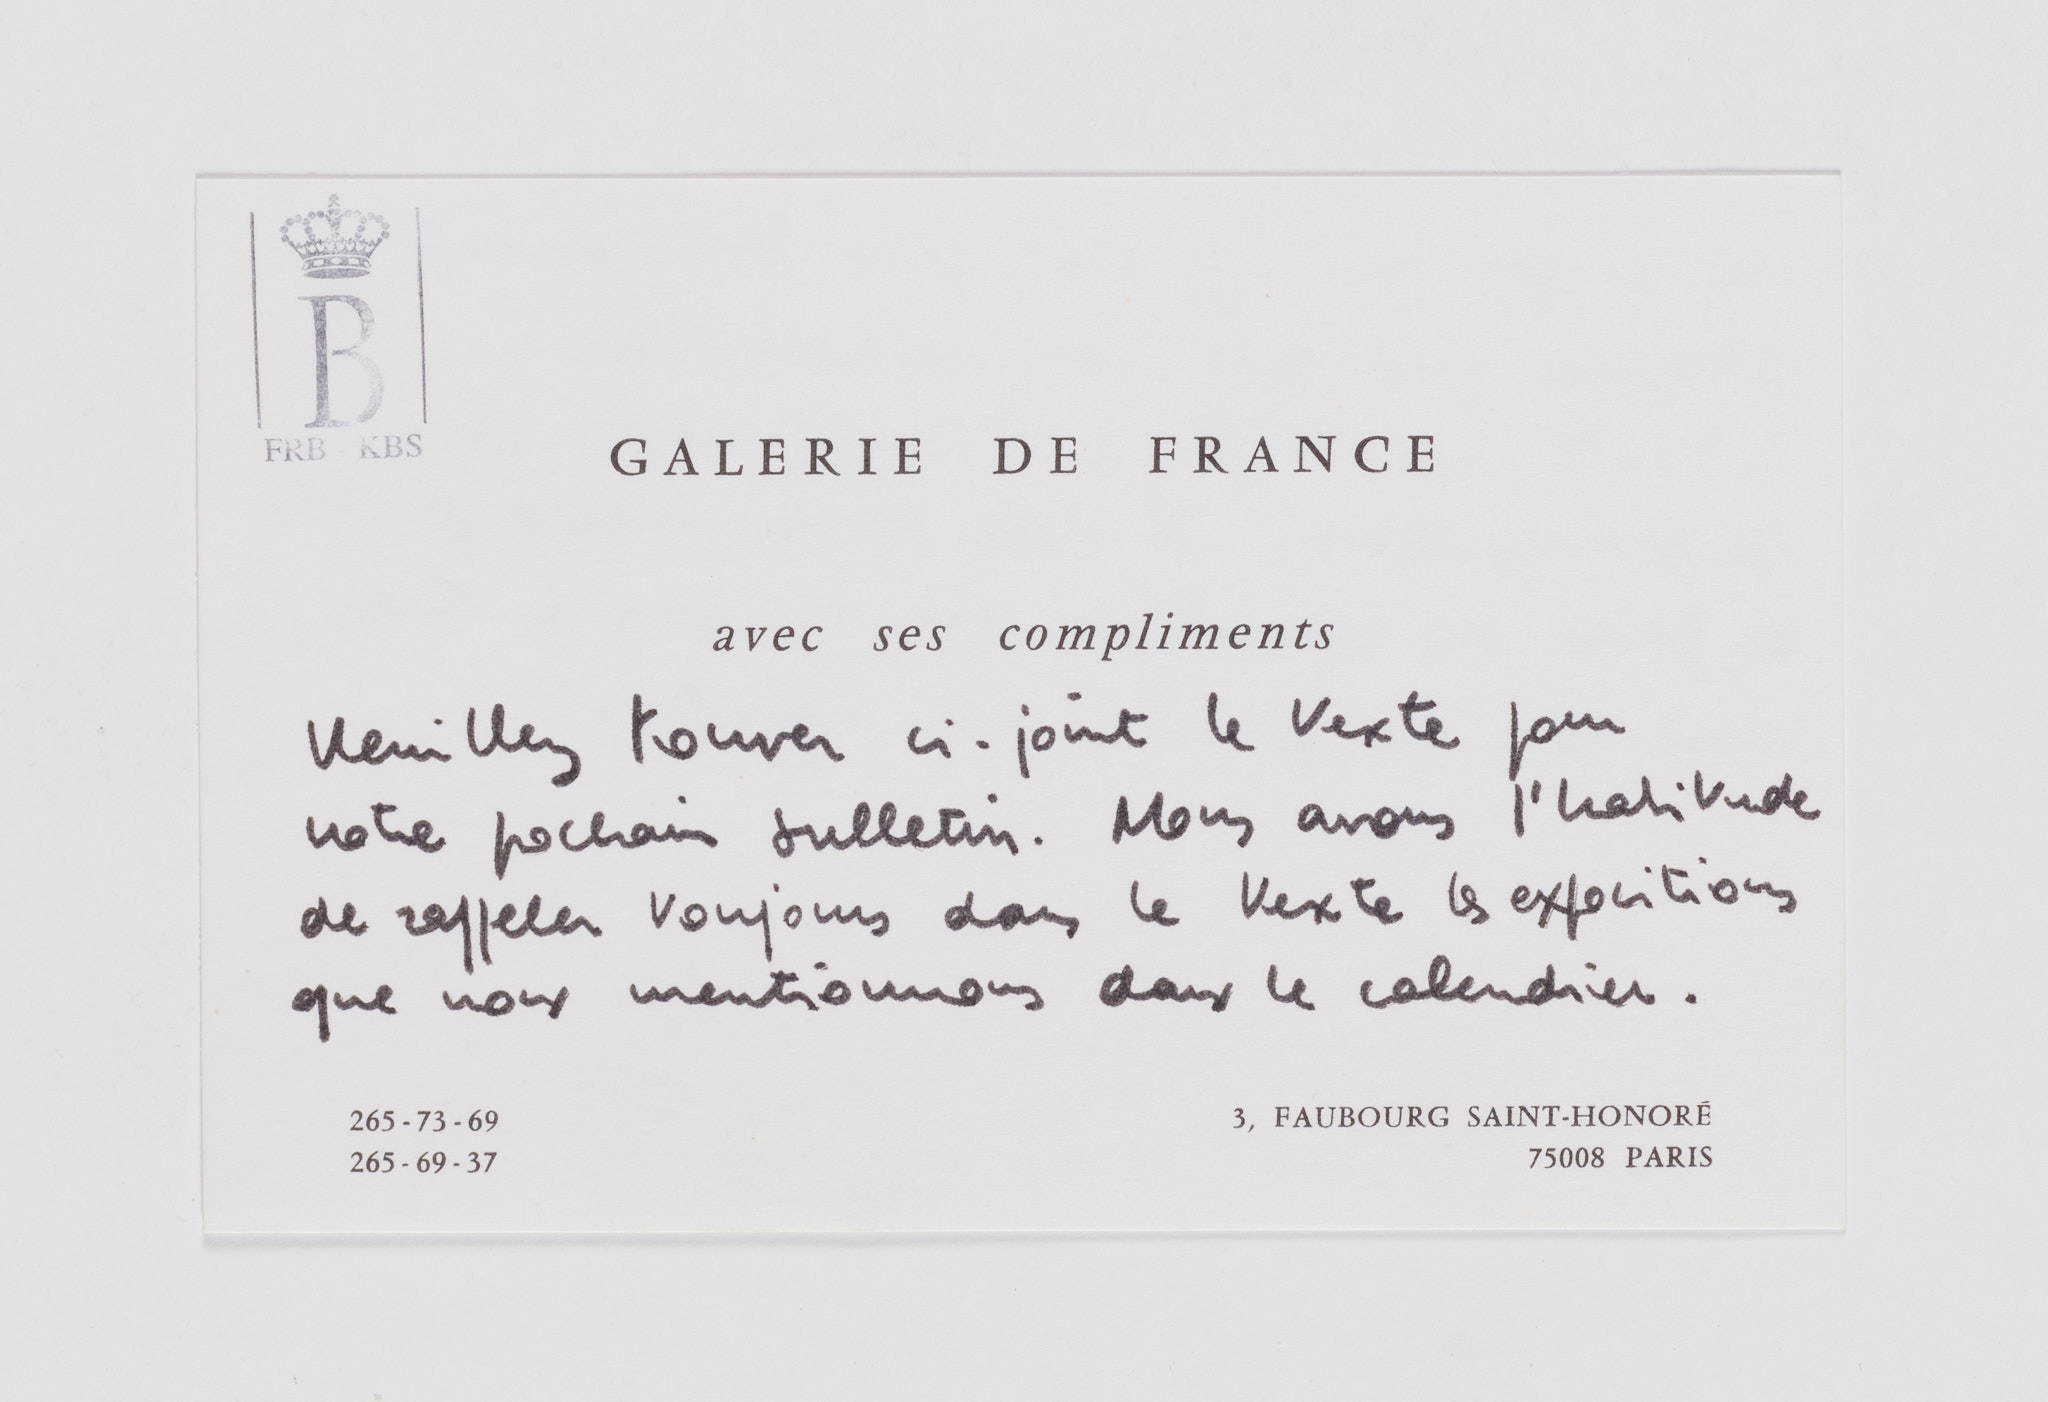 B
FRB - KBS
GALERIE DE FRANCE
avec ses compliments
Veuillez trouver ci-joint le texte pour
notre prochain bulletin. Nous avons l'habitude
de rappeler toujours dans le texte les expositions
que nous mentionnons dans le calendrier.
265-73-69
265-69-37
3, FAUBOURG SAINT-HONORÉ
75008 PARIS